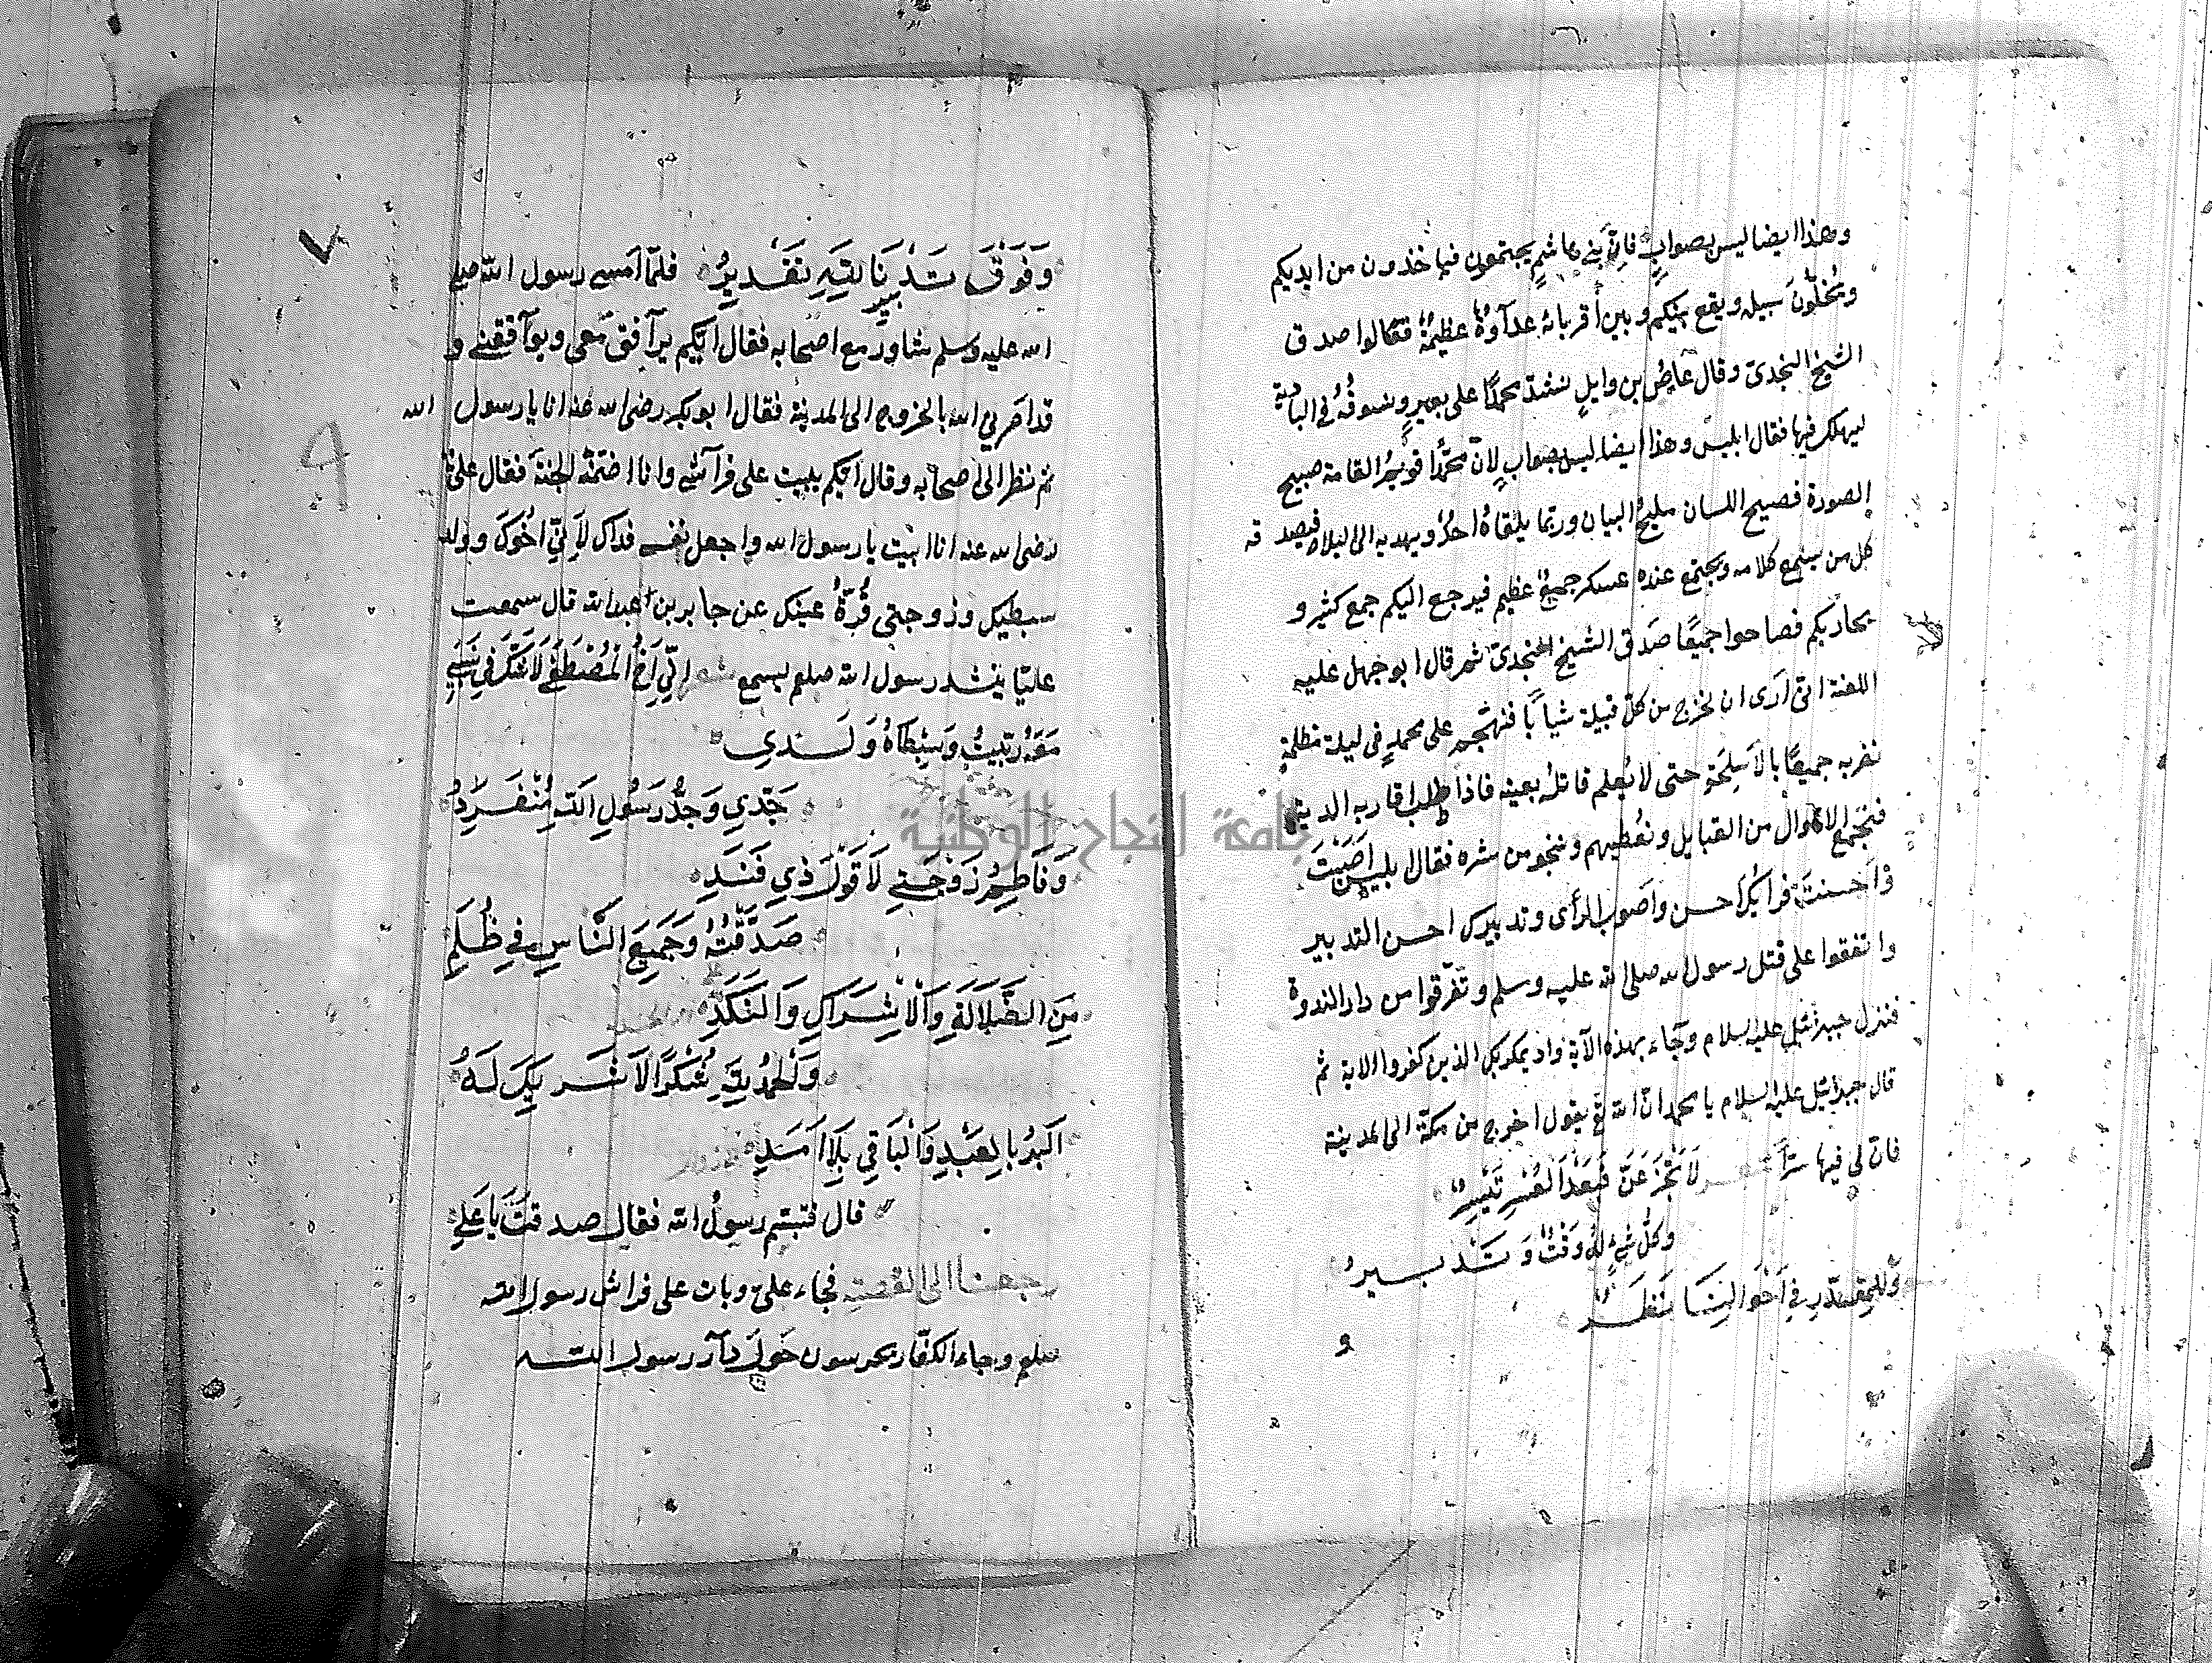 وهذا ايضا ليس بصواب فانّ بني هاشم يجتمعون فياخذون من ايديكم
ويُخلّون سبيله ويقع بينكم وبين أقربائه عدآوةٌ عظيمةٌ فقالوا صدق
الشيخ النجدى وقال عاصُ بن وايلٍ نشدّ محمدًا على بعيرٍ ونسوقُهُ في البادية
ليهلك فيها فقال ابليس وهذا ايضا ليس بصوابٍ لانّ محمّدًا قويمُ القامة صبيح
الصورة فصيح اللسان مليحُ البيان وربّما يلتقاهُ احدٌ ويهديه الى البلاد فيصدقه
كل من يسمع كلامه ويجتمع عنده عسكر جميعٌ عظيم فيرجع اليكم جمع كثير و
يحاربكم فصاحوا جميعًا صَدق الشيخ النجدىّ ثم قال ابو جهل عليه
اللعنة انّى اَرَى ان نخرج من كلّ قبيلة شبابًا فنهجم على محمدٍ فى ليلة مظلمةٍ
نضربه جميعًا بالاَسلِحَةِ حتى لا يُعلم قاتلُه بعينه فاذا طلب اقاربه الدية
فنجمع الاموال من القبايل ونعُطيهم وننجو من شره فقال ابليس اَصَبْتَ
واَحسنتَ فرايُك اَحسن واَصوبُ الرأى وتدبيرك احسن التدبير
واتفقوا على قتل رسول الله صلى الله عليه وسلم وتفرّقوا من دار الندوة
فنزل جبرائيل عليه السلام وجآء بهذه الآية واذ يمكر بك الذين كفروا الاية ثم
قال جبرائيل عليه السلام يا محمد انّ الله تع يقول اخرج من مكّة الى المدينة
فانّ لى فيها سرًّا شعر لَا تَجْزَعَنَّ فَبَعْدَ الْعُسْرِ تَيْسِيرٌ
وَكلُّ شَيْءٍ لَهُ وَقْتٌ وَتَدْبِيرُ
وَلِلْمُقَدِّرِ فِي اَحْوَالِنَا نَظَرٌ
وَ
وَفَوْقَ تَدْبِيرِنَا لِلّهِ تَقْدِيرُ فلمّا اَمسى رسول الله صلى
الله عليه وسلم شاور مع اصحابه فقال ايّكم يرآفق معى ويوآفقنى و
قد امرنى الله بالخروج الى المدينة فقال ابو بكر رضى الله عنه انا يا رسول الله
ثم نظر الى اصحابه وقال ايّكم يبيت على فرآشى وانا اضمنُ له الجنة فقال علىّ
رضى الله عنه انا ابيت يا رسول الله واجعل نفسى فداك لاَنّي اخوك ووالد
سبطيك وزوجتى قُرّةُ عينك عن جابر بن عبد الله قال سمعت
عليّا ينشد رسول الله صلعم يسمع شعر اِنّي اَخُ الْمُصْطَفٰى لَا شَكَّ فِي نَسَبِي
مَعَهُ رَبِيْتُ وَسِبْطَاهُ وَلَدِي
جَدِّي وَجَدُّ رَسُولِ اللّهِ مُنْفَرِدُ
وَفَاطِمُ زَوْجَتِي لَا قَوْلَ ذِي فَنَدِ
صَدَّقْتُهُ وَجَمِيعُ النَّاسِ فِي ظُلَمٍ
مِنَ الضَّلَالَةِ وَالْاِشْرَاكِ وَالنَّكَدِ
وَالْحَمْدُ لِلّهِ شُكْرًا لَا شَرِيكَ لَهُ
اَلْبَرُّ بِالْعَبْدِ وَالْبَاقِي بِلَا اَمَدِ
قال فتبسّم رسولُ الله فقال صدقتَ يَا عَلِيُّ
رجعنا الى القصة فجاء علىّ وبات على فراش رسول الله
صلعم وجاء الكفّار يحرسون حَولَ دآر رسول الله
جامعة النجاح الوطنية